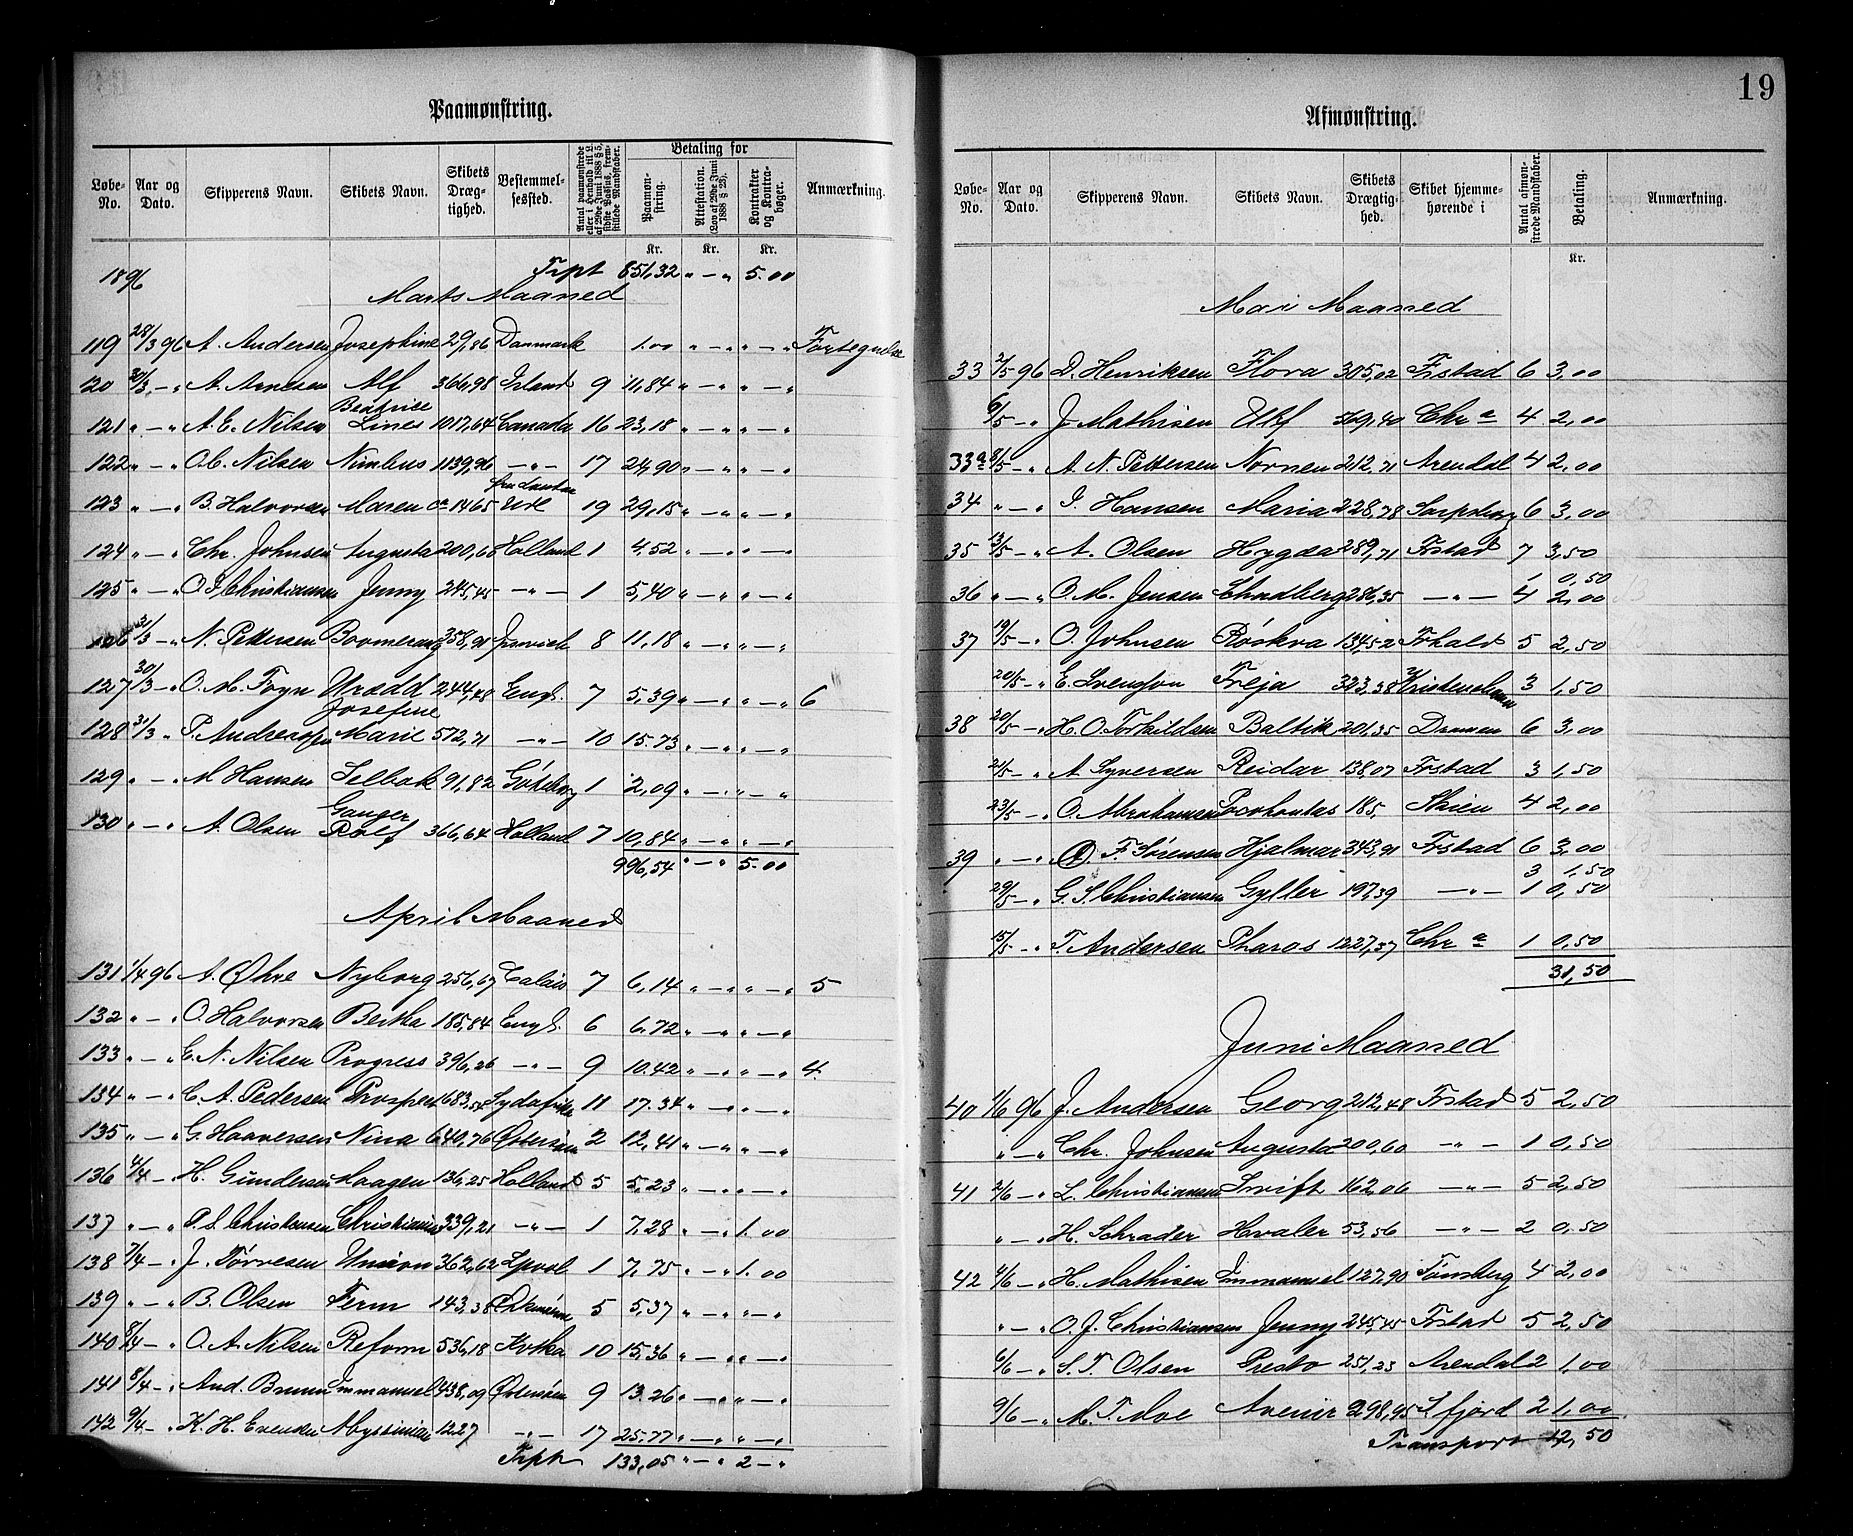 19
Paamønstring.
Løbe-No. | Aar og Dato. | Skipperens Navn. | Skibets Navn. | Skibets Dræg-tighed. | Bestemmel-sessted. | Antal paamønstrede eller i Henhold til L. af 29de Juni 1888 § 5, sidste Passus, frem-stillede Mandskaber. | Betaling for | Paamøn-string. Kr. | Attestation. (Lov af 29de Juni 1888 § 23). Kr. | Kontrakter og Kontra-bøger. Kr. | Anmærkning.
1896 Trpt 851,32 „ — „ 5.00
Marts Maaned
119 28/3 96 A. Andersen Josephine 29,86 Danmark 1.00 „ — „ „ — „ Fortegnelse
120 30/3 - „ A. Arnesen Alf 366,98 Irland 9 11,84 „ — „ „ — „
121 „ — „ A. E. Nilsen Beatrice Lines 1017,64 Canada 16 23,18 „ — „ „ — „
122 „ — „ O.C. Nilsen Nimbus 1139,96 — „ — 17 24,90 „ — „ „ — „
123 „ — „ B. Halvorsen Maren ca 1465 19 29,15 „ — „ „ — „
124 „ — „ Chr. Johnsen Augusta 200,60 Holland 1 4.52 „ — „ „ — „
125 „ — „ O J Christiansen Jenny 245,45 — „ — 1 5,40 „ — „ „ — „
126 31/3 - „ N. Pettersen Boomerang 358,91 Ipswich 8 11,18 „ — „ „ — „
127 30/3 - „ O. M. Foyn Urædd 244,48 Engl. 7 5,39 „ — „ „ — „ 6
128 31/3 „ P. Andreassen Josefine Marie 572,71 — „ — 10 15.73 „ — „ „ — „
129 „ — „ M Hansen Selbak 91,82 Göteborg 1 2,09 „ — „ „ — „
130 „ — „ A. Olsen Ganger Rolf 366,64 Holland 7 10,84 „ — „ „ — „
996,54 „ — „ 5.00
April Maaned
131 1/4 96 A. Øhre Nyborg 256,67 Calais 7 6,14 „ — „ „ — „ 5
132 „ — „ O. Halvorsen Bertha 185,84 Engl. 6 6.72 „ — „ „ — „
133 „ — „ E. N. Nilsen Progress 396,26 — „ — 9 10.42 „ — „ „ — „ 4.
134 „ — „ C. A. Pedersen Prosper 683,54 Sydafrika 11 17.34 „ — „ „ — „
135 „ — „ G. Haaversen Nina 640,76 Østersøen 2 12,41 „ — „ „ — „
136 4/4 - „ H. Gundersen Haagen 136,25 Holland 5 5,23 „ — „ „ — „
137 „ — „ P. S. Christensen Christiania 339,21 — „ — 1 7.28 „ — „ 1.00
138 7/4 - „ J. Tørresen Union 362,62 Lpool 1 7.75 „ — „ 1.00
139 „ — „ B. Olsen Ferm 143,38 5 5,37 „ „ — „
140 8/4 - „ O. A. Nilsen Reform 536,18 Kotka 10 15,36 „ — „ „ — „
141 8/4 - „ And. Bruun Immanuel 438,09 Østersøen 9 13.26 „ — „ „ — „
142 9/4 - „ K. H. Evensen Abyssinian 1227 — „ — 17 25,77 „ — „ „ — „
Trpt 133,05 „ — „ 2 — „
Afmønstring.
Løbe-No. | Aar og Dato. | Skipperens Navn. | Skibets Navn. | Skibets Drægtig-hed. | Skibet hjemme-hørende i | Antal afmøn-strede Mandskaber. | Betaling. Kr. | Anmærkning.
Mai Maaned
33 2/5 96 D. Henriksen Flora 305,02 Frstad 6 3,00
6/5 - „ J. Mathisen Ulf 569,40 Chr a 4 2,00
33a 8/5 - „ A. N. Pettersen Nornen 212,71 Arendal 4 2,00
34 „ — „ I. Hansen Maria 228,78 Sarpsborg 6 3,00
35 13/5 - „ A. Olsen Hygea 289,71 Frstad 7 3,50
1 0,50
36 „ — „ O. M. Jensen 286,35 — „ — 4 2,00
37 19/5 - „ O. Johnsen Röskva 134,52 Frhald 5 2,50
20/5 - „ E. Svensson Freja 323,38 3 1,50
38 20/5 - „ H. O. Torkildsen Baltik 201,35 Dramen 6 3,00
21/5 - „ A Syversen Reidar 138,07 Frstad 3 1,50
23/5 - „ O. Abrahamsen Pocahontas 185, Skien 4 2,00
39 „ — „ O. F. Sörensen Hjalmar 343,91 Frstad 6 3,00
3 1,50
29/5 - „ G. S. Christiansen Gyller 197,39 — „ — 1 0,50
15/5 - „ T. Andersen Pharos 1227,37 Chr a 1 0,50
31,50
Juni Maaned
40 1/6 96 J. Andersen Georg 212,48 Frstad 5 2,50
„ — „ Chr. Johnsen Augusta 200,60 — „ — 1 0,50
41 2/6 - „ L. Christiansen Swift 162,06 — „ — 5 2,50
„ — „ H. Schrader Hvaler 53,56 — „ — 2 0,50
42 4/6 - „ H. Mathisen Immanuel 127,90 Tønsberg 4 2,00
„ — „ O. J. Christiansen Jenny 245,45 Frstad 5 2,50
6/6 - „ S. T. Olsen Presto 251,23 Arendal 2 1,00
9/6 - „ M. T. Moe Avenir 298,95 Sfjord 2 1,00
Transport 12,50